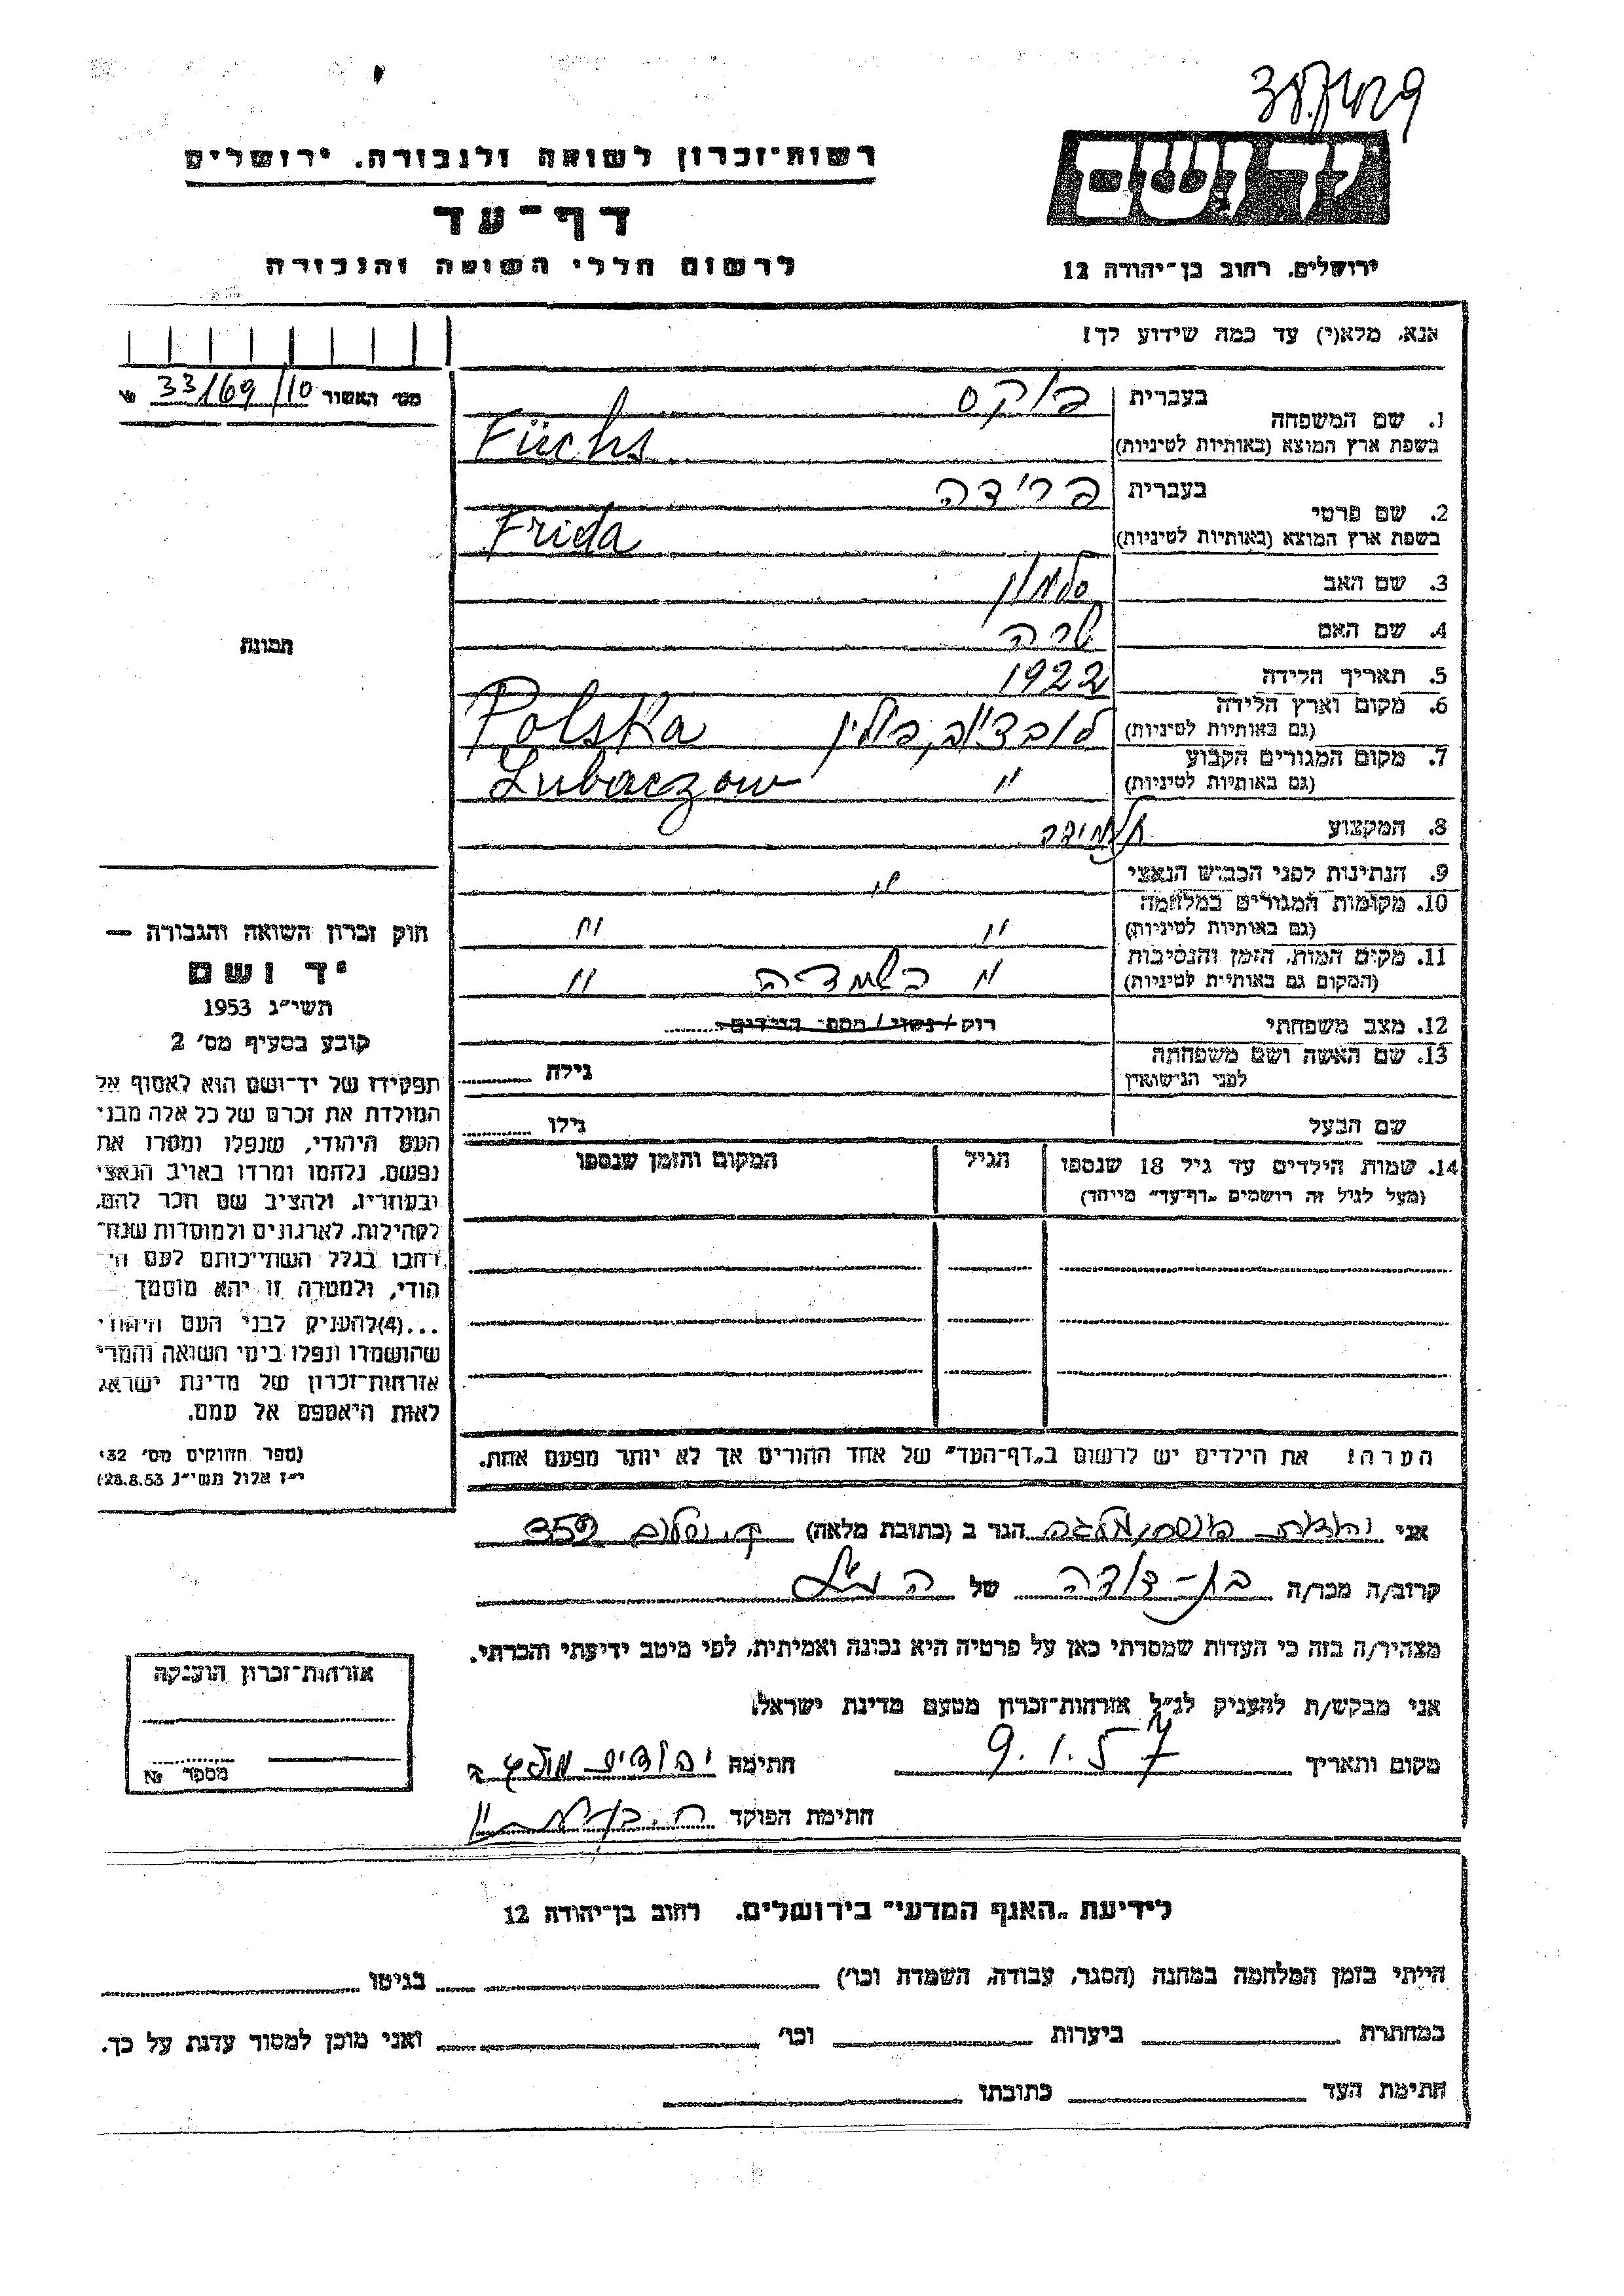 38/429
רשות־זכרון לשואה ולגבורה. ירושלים
יד ושם
דף־עד
לרשום חללי השואה והגבורה
ירושלים. רחוב בן־יהודה 12
אנא, מלא(י) עד כמה שידוע לך!
מס׳ האשור 33/69/10
1. שם המשפחה בעברית פוקס
בשפת ארץ המוצא (באותיות לטיניות) Füchs
2. שם פרטי בעברית פרידה
בשפת ארץ המוצא (באותיות לטיניות) Frida
3. שם האב סלמון
4. שם האם שרה
תמונה
5. תאריך הלידה 1922
6. מקום וארץ הלידה (גם באותיות לטיניות) לובצ'וב, פולין Polska
7. מקום המגורים הקבוע (גם באותיות לטיניות) " Lubaczow
8. המקצוע תלמידה
9. הנתינות לפני הכבוש הנאצי "
10. מקומות המגורים במלחמה (גם באותיות לטיניות) " "
11. מקום המות, הזמן והנסיבות (המקום גם באותיות לטיניות) " השמדה "
12. מצב משפחתי רווק / נשוי / מספר הילדים
13. שם האשה ושם משפחתה לפני הנישואין גילה
שם הבעל גילו
14. שמות הילדים עד גיל 18 שנספו הגיל המקום והזמן שנספו
(מעל לגיל זה רושמים „דף־עד״ מיוחד)
חוק זכרון השואה והגבורה —
יד ושם
תשי״ג 1953
קובע בסעיף מס׳ 2
תפקידו של יד־ושם הוא לאסוף אל
המולדת את זכרם של כל אלה מבני
העם היהודי, שנפלו ומסרו את
נפשם, נלחמו ומרדו באויב הנאצי
ובעוזריו, ולהציב שם וזכר להם,
לקהילות, לארגונים ולמוסדות שנח־
רבו בגלל השתייכותם לעם הי־
הודי, ולמטרה זו יהא מוסמך —
...(4)להעניק לבני העם היהודי
שהושמדו ונפלו בימי השואה והמרי
אזרחות־זכרון של מדינת ישראל
לאות היאספם אל עמם.
(ספר החוקים מס׳ 132
י״ז אלול תשי״ג 28.8.53)
הערה! את הילדים יש לרשום ב„דף־העד״ של אחד ההורים אך לא יותר מפעם אחת.
אני יהודית הגר ב (כתובת מלאה) 359
קרוב/ה מכר/ה בת־דודה של הנ״ל
מצהיר/ה בזה כי העדות שמסרתי כאן על פרטיה היא נכונה ואמיתית, לפי מיטב ידיעתי והכרתי.
אני מבקש/ת להעניק לנ״ל אזרחות־זכרון מטעם מדינת ישראל.
מקום ותאריך 9.1.57 חתימה יהודית
חתימת הפוקד
אזרחות־זכרון הוענקה
מספר №
לידיעת „האגף המדעי״ בירושלים. רחוב בן־יהודה 12
הייתי בזמן המלחמה במחנה (הסגר, עבודה, השמדה וכו׳) בגיטו
במחתרת ביערות וכו׳ ואני מוכן למסור עדות על כך.
חתימת העד כתובתו